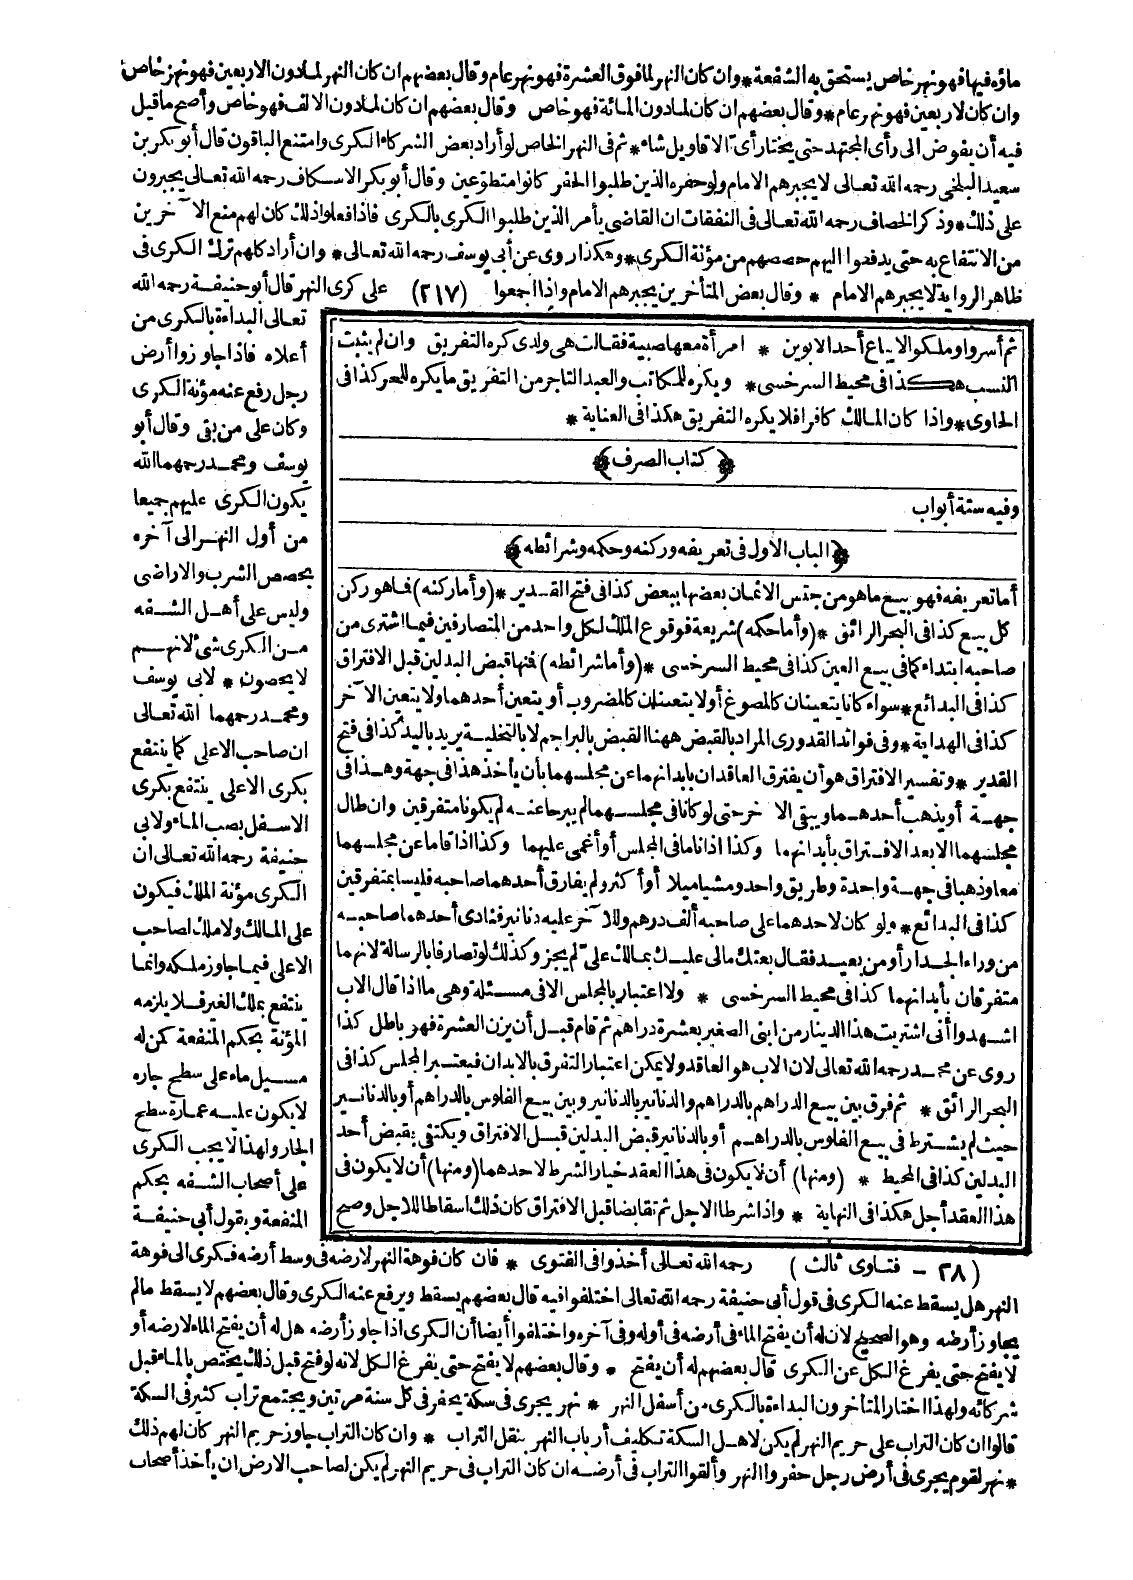 ماؤه فيها فهو نهر خاص يستحق به الشفعة * وان كان النهر لما فوق العشرة فهو نهر عام وقال بعضهم ان كان النهر لما دون الاربعين فهو نهر خاص
وان كان لاربعين فهو نهر عام * وقال بعضهم ان كان لما دون المائة فهو خاص وقال بعضهم ان كان لما دون الالف فهو خاص وأصح ما قيل
فيه أن يفوض الى رأى المجتهد حتى يختار أى الاقاويل شاء * ثم فى النهر الخاص لو أراد بعض الشركاء الكرى وامتنع الباقون قال أبو بكر بن
سعيد البلخى رحمه الله تعالى لا يجبرهم الامام ولو حفره الذين طلبوا الحفر كانوا متطوعين وقال أبو بكر الاسكاف رحمه الله تعالى يجبرون
على ذلك * وذكر الخصاف رحمه الله تعالى فى النفقات ان القاضى يأمر الذين طلبوا الكرى بالكرى فاذا فعلوا ذلك كان لهم منع الآخرين
من الانتفاع به حتى يدفعوا اليهم حصصهم من مؤنة الكرى * وهكذا روى عن أبى يوسف رحمه الله تعالى * وان أراد كلهم ترك الكرى فى
ظاهر الرواية لا يجبرهم الامام * وقال بعض المتأخرين يجبرهم الامام واذا اجمعوا (٢١٧) على كرى النهر قال أبو حنيفة رحمه الله
تعالى البداءة بالكرى من
أعلاه فاذا جاوزوا أرض
رجل رفع عنه مؤنة الكرى
وكان على من بقى وقال أبو
يوسف ومحمد رحمهما الله
يكون الكرى عليهم جميعا
من أول النهر الى آخره
بحصص الشرب والاراضى
وليس على أهل الشفه
من الكرى شئ لانهم
لا يحصون * لابى يوسف
ومحمد رحمهما الله تعالى
ان صاحب الاعلى كما ينتفع
بكرى الاعلى ينتفع بكرى
الاسفل بصب الماء ولابى
حنيفة رحمه الله تعالى ان
الكرى مؤنة الملك فيكون
على المالك ولا ملك لصاحب
الاعلى فيما جاوز ملكه وانما
ينتفع بملك الغير فلا يلزمه
المؤنة بحكم المنفعة كمن له
مسيل ماء على سطح جاره
لا يكون عليه عمارة سطح
الجار ولهذا لا يجب الكرى
على أصحاب الشفه بحكم
المنفعة وبقول أبى حنيفة
ثم أسروا وملكوا لا يباع أحد الابوين * امرأة معها صبية فقالت هى ولدى كره التفريق وان لم يثبت
النسب هكذا فى محيط السرخسى * ويكره للمكاتب والعبد التاجر من التفريق ما يكره للحر كذا فى
الحاوى * واذا كان المالك كافرا فلا يكره التفريق هكذا فى العناية *
﴿ كتاب الصرف ﴾
وفيه ستة أبواب
﴿ الباب الاول فى تعريفه وركنه وحكمه وشرائطه ﴾
أما تعريفه فهو بيع ما هو من جنس الاثمان بعضها ببعض كذا فى فتح القدير * (وأما ركنه) فما هو ركن
كل بيع كذا فى البحر الرائق * (وأما حكمه) شريعة فوقوع الملك لكل واحد من المتصارفين فيما اشترى من
صاحبه ابتداء كما فى بيع العين كذا فى محيط السرخسى * (وأما شرائطه) فمنها قبض البدلين قبل الافتراق
كذا فى البدائع * سواء كانا يتعينان كالمصوغ أولا يتعينان كالمضروب أو يتعين أحدهما ولا يتعين الآخر
كذا فى الهداية * وفى فوائد القدورى المراد بالقبض ههنا القبض بالبراجم لا بالتخلية يريد باليد كذا فى فتح
القدير * وتفسير الافتراق هو أن يفترق العاقدان بابدانهما عن مجلسهما بأن يأخذ هذا فى جهة وهذا فى
جهة أو يذهب أحدهما ويبقى الآخر حتى لو كانا فى مجلسهما لم يبرحا عنه لم يكونا متفرقين وان طال
مجلسهما الا بعد الافتراق بأبدانهما وكذا اذا ناما فى المجلس أو أغمى عليهما وكذا اذا قاما عن مجلسهما
معا وذهبا فى جهة واحدة وطريق واحد ومشيا ميلا أو أكثر ولم يفارق أحدهما صاحبه فليسا بمتفرقين
كذا فى البدائع * ولو كان لاحدهما على صاحبه ألف درهم وللآخر عليه دنانير فنادى أحدهما صاحبه
من وراء الجدار أو من بعيد فقال بعتك مالى عليك بمالك على لم يجز وكذلك لو تصارفا بالرسالة لانهما
متفرقان بأبدانهما كذا فى محيط السرخسى * ولا اعتبار بالمجلس الا فى مسئلة وهى ما اذا قال الاب
اشهدوا أنى اشتريت هذا الدينار من ابنى الصغير بعشرة دراهم ثم قام قبل أن يزن العشرة فهو باطل كذا
روى عن محمد رحمه الله تعالى لان الاب هو العاقد ولا يمكن اعتبار التفرق بالابدان فيعتبر المجلس كذا فى
البحر الرائق * ثم فرق بين بيع الدراهم بالدراهم والدنانير بالدنانير وبين بيع الفلوس بالدراهم أو بالدنانير
حيث لم يشترط فى بيع الفلوس بالدراهم أو بالدنانير قبض البدلين قبل الافتراق ويكتفى بقبض أحد
البدلين كذا فى المحيط * (ومنها) أن لا يكون فى هذا العقد خيار الشرط لاحدهما (ومنها) أن لا يكون فى
هذا العقد أجل هكذا فى النهاية * واذا شرطا الاجل ثم تقابضا قبل الافتراق كان ذلك اسقاطا للاجل وصح
(٢٨ - فتاوى ثالث) رحمه الله تعالى أخذوا فى الفتوى * فان كان فوهة النهر لارضه فى وسط أرضه فكرى الى فوهة
النهر هل يسقط عنه الكرى فى قول أبى حنيفة رحمه الله تعالى اختلفوا فيه قال بعضهم يسقط ويرفع عنه الكرى وقال بعضهم لا يسقط مالم
يجاوز أرضه وهو الصحيح لان له أن يفتح الماء فى أرضه فى أوله وفى آخره واختلفوا أيضا أن الكرى اذا جاوز أرضه هل له أن يفتح الماء لارضه أو
لا يفتح حتى يفرغ الكل عن الكرى قال بعضهم له أن يفتح * وقال بعضهم لا يفتح حتى يفرغ الكل لانه لو فتح قبل ذلك يختص بالماء قبل
شركائه ولهذا اختار المتأخرون البداءة بالكرى من أسفل النهر * نهر يجرى فى سكة يحفر فى كل سنة مرتين ويجتمع تراب كثير فى السكة
قالوا ان كان التراب على حريم النهر لم يكن لاهل السكة تكليف أرباب النهر بنقل التراب * وان كان التراب جاوز حريم النهر كان لهم ذلك
* نهر لقوم يجرى فى أرض رجل حفروا النهر وألقوا التراب فى أرضه ان كان التراب فى حريم النهر لم يكن لصاحب الارض ان يأخذ أصحاب